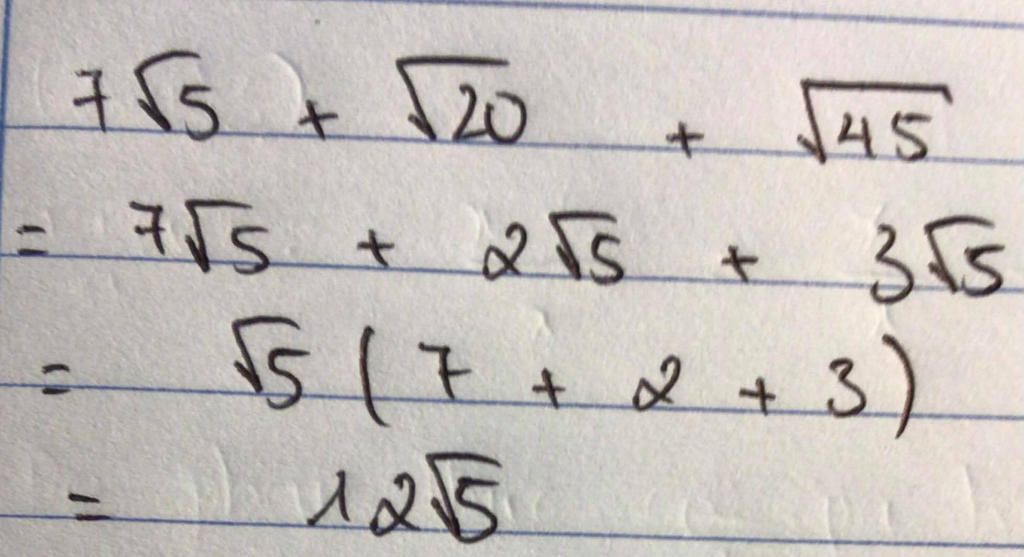 7√5 + √20 + √45
= 7√5 + 2√5 + 3√5
= √5 ( 7 + 2 + 3 )
= 12√5